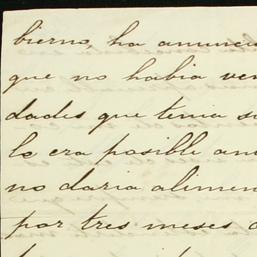 bierno, ha anuncia
que no habia ven
dades que tenia su
le era posible am
no daria alimen
por tres meses